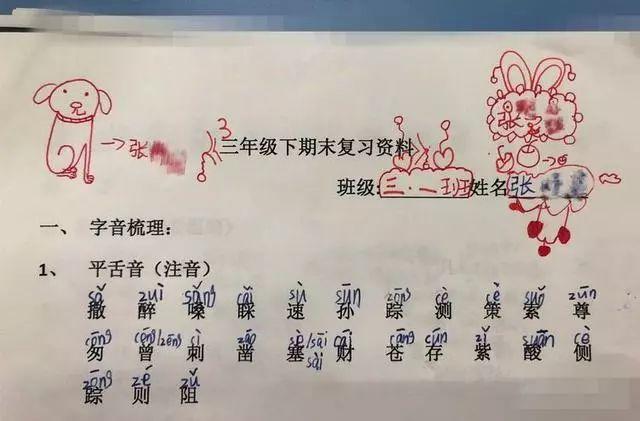 →张
三年级下期末复习资料
张
班级:三.一班姓名张
一、 字音梳理：
1、 平舌音（注音）
sǎ zuì sǎng cǎi sù sūn zōng cè cè suǒ zūn
撒 醉 嗓 睬 速 孙 踪 测 策 索 尊
cōng céng/zēng cì záo sè/sāi/sài cái cāng cún zǐ suān cè
匆 曾 刺 凿 塞 财 苍 存 紫 酸 侧
zōng zé zǔ
踪 则 阻